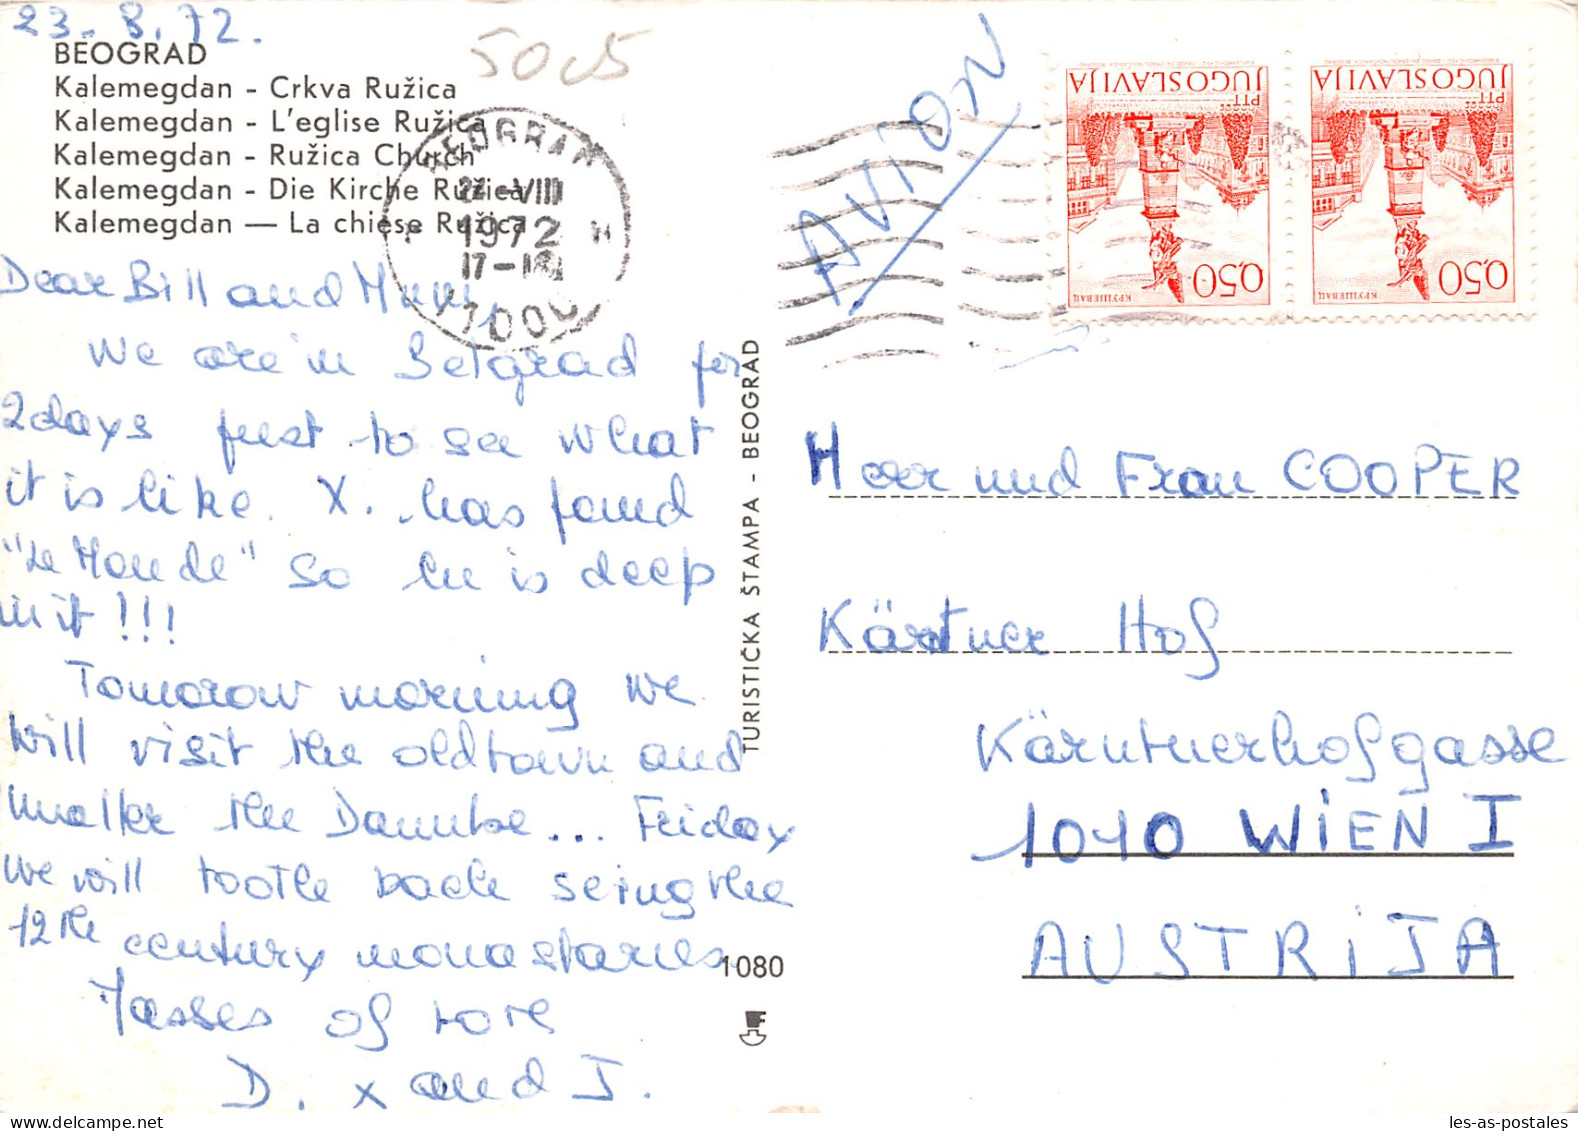 23-8.72.
BEOGRAD
Kalemegdan - Crkva Ružica
Kalemegdan - L'eglise Ružica
Kalemegdan - Ružica Church
Kalemegdan - Die Kirche Ružica
Kalemegdan — La chiese Ružica
BEOGRAD
VIII
1972
17-18
11000
Dear Bill and Mum,
We are in Belgrad for
2 days just to see what
it is like. X. has found
"Le Monde" so he is deep
in it !!!
Tomorow morning we
will visit the old town and
the Danube... Friday
we will tootle back seing the
12th century monastaries
of love
D. X and J.
TURISTIČKA ŠTAMPA - BEOGRAD
1080
AVION
JUGOSLAVIJA
PTT
0,50
КРУШЕВАЦ
JUGOSLAVIJA
PTT
0,50
КРУШЕВАЦ
Herr und Frau COOPER
Kärtner Hof
Kärntnerhofgasse
1010 WIEN I
AUSTRIJA
les-as-postales